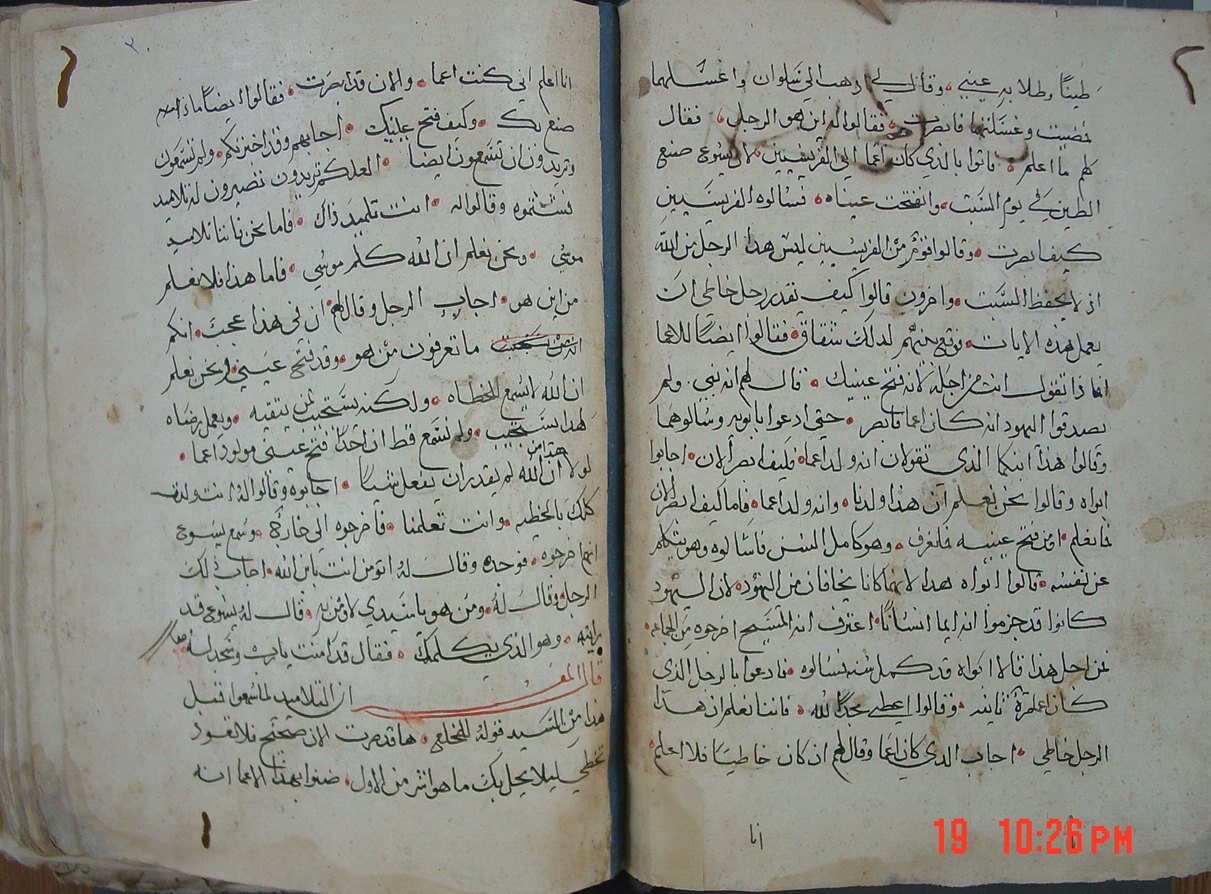 طينًا وطلا به عيني • وقال لي اذهب الي سلوان واغسلهما
فمضيت وغسلتهما فابصرت • فقالوا له اين هو الرجل • فقال
لهم ما اعلم • فاتوا بالذي كان اعما الي الفريسيين • لان يسوع صنع
الطين في يوم السبت • وانفتحت عيناه • فسالوه الفريسيين
كيف ابصرت • وقالوا قوم من الفريسيين ليس هذا الرجل من الله
اذ لا يحفظ السبت • واخرون قالوا كيف يقدر رجل خاطي ان
يعمل هذه الايات • فوقع بينهم لذلك شقاق • فقالوا ايضًا للاعما
انما ذا تقول انت من اجله لانه فتح عينيك • قال لهم انه نبي • ولم
يصدقوا اليهود انه كان اعما فابصر • حتي ادعوا بابويه وسالوهما
وقالوا هذا ابنكما الذي تقولان انه ولد اعما • فكيف ابصر الان • اجابوا
ابواه وقالوا نحن نعلم ان هذا ولدنا • وانه ولد اعما • فاما كيف ابصر الان
فما نعلم • او من فتح عينيه فلم نعرف • وهو كامل السن فاسالوه وهو يتكلم
عن نفسه • قالوا ابواه هذا لانهما كانا يخافان من اليهود • لان اليهود
كانوا قد جزموا انه ايما انسانًا • اعترف انه المسيح اخرجوه من الجماعه •
من اجل هذا قالا ابواه قد كمل سنه فسالوه • فادعوا بالرجل الذي
كان اعما مرة ثانيه • وقالوا اعطي مجدًا لله • فاننا نعلم ان هذا
الرجل خاطي • اجاب الذي كان اعما وقال لهم ان كان خاطيًا فلا اعلم •
انا
٢٠
انا اعلم اني كنت اعما • والان قد ابصرت • فقالوا ايضًا ماذا
صنع بك • وكيف فتح عينيك • اجابهم وقد اخبرتكم • ولم تسمعون
وتريدون ان تسمعون ايضًا • العلكم تريدون تصيرون له تلاميد
فشتموه وقالوا له • انت تلميد ذاك • فاما نحن فاننا تلاميد
موسي • ونحن نعلم ان الله كلم موسي • فاما هذا فلا نعلم
من اين هو • اجاب الرجل وقال لهم ان في هذا عجبًا • انكم
ما تعرفون من هو • وقد فتح عيني • ونحن نعلم
ان الله لا يسمع للخطاه • ولكنه يستجيب لمن يتقيه • ويعمل رضاه
لهذا يستجيب • ولم نسمع قط ان احدًا فتح عيني مولود اعما •
لولا ان هذا من الله لم يقدر ان يفعل شيًا • اجابوه وقالوا له انت ولدت
كلك بالخطيه • وانت تعلمنا • فاخرجوه الي خارجًا • وسمع يسوع
انهم اخرجوه • فوجده وقال له اتومن انت بابن الله • اجاب ذلك
الرجل وقال له • ومن هو يا سيدي لاومن به • قال له يسوع قد
رايته • وهو الذي يكلمك • فقال قد امنت يا رب وسجد له
قال المفسر ان التلاميد لما سمعوا قبل
هذا من السيد قوله للمخلع • ها قد صرت الان صحيح فلا تعود
تخطي ليلا يحل بك ما هو اشر من الاول • ضنوا بهذا الاعما انه